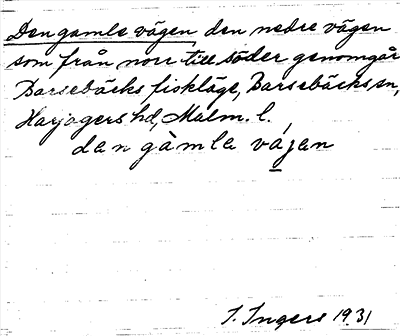 Den gamla vägen, den nedre vägen
som från norr till söder genomgår
Barsebäcks fiskläge, Barsebäcks sn,
Harjagers hd, Malm. l.
dan gàmla vájan
I. Ingers 1931